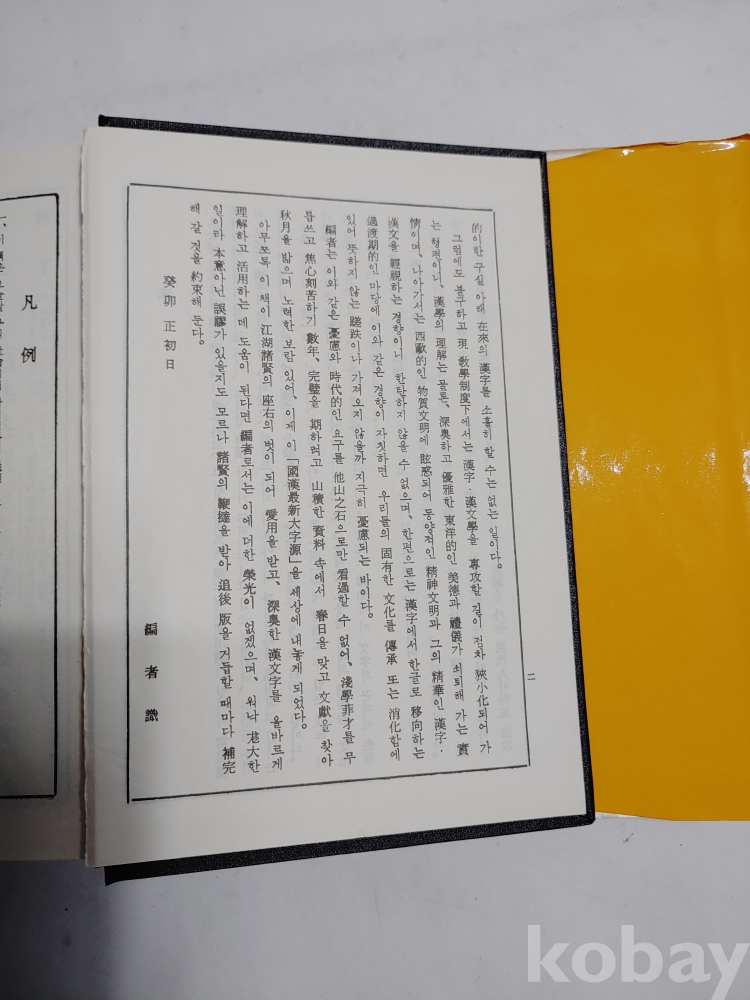 的이한 구실 아래 在來의 漢字를 소홀히 할 수는 없는 일이다.
그럼에도 불구하고 現 敎學制度下에서는 漢字·漢文學을 專攻할 길이 점차 狹小化되어 가
는 형편이니, 漢學의 理解는 물론, 深奧하고 優雅한 東洋的인 美德과 禮儀가 쇠퇴해 가는 實
情이며, 나아가서는 西歐的인 物質文明에 眩惑되어 동양적인 精神文明과 그의 精華인 漢字·
漢文을 輕視하는 경향이니 한탄하지 않을 수 없으며, 한편으로는 漢字에서 한글로 移向하는
過渡期的인 마당에 이와 같은 경향이 자칫하면 우리들의 固有한 文化를 傳承 또는 消化함에
있어 뜻하지 않는 蹉跌이나 가져오지 않을까 지극히 憂慮되는 바이다.
編者는 이와 같은 憂慮와 時代的인 요구를 他山之石으로만 看過할 수 없어, 淺學菲才를 무
릅쓰고 焦心刻苦하기 數年, 完璧을 期하려고 山積한 資料 속에서 春日을 맞고 文獻을 찾아
秋月을 밟으며 노력한 보람 있어, 이제 이 「國漢最新大字源」을 세상에 내놓게 되었다.
아무쪼록 이 책이 江湖諸賢의 座右의 벗이 되어 愛用을 받고, 深奧한 漢文字를 올바르게
理解하고 活用하는 데 도움이 된다면 編者로서는 이에 더한 榮光이 없겠으며, 워낙 尨大한
일이라 本意아닌 誤謬가 있을지도 모르나 諸賢의 鞭撻을 받아 追後 版을 거듭할 때마다 補完
해 갈 것을 約束해 둔다.
癸卯 正初日
編者 識
二
凡例
一、이 책은
kobay